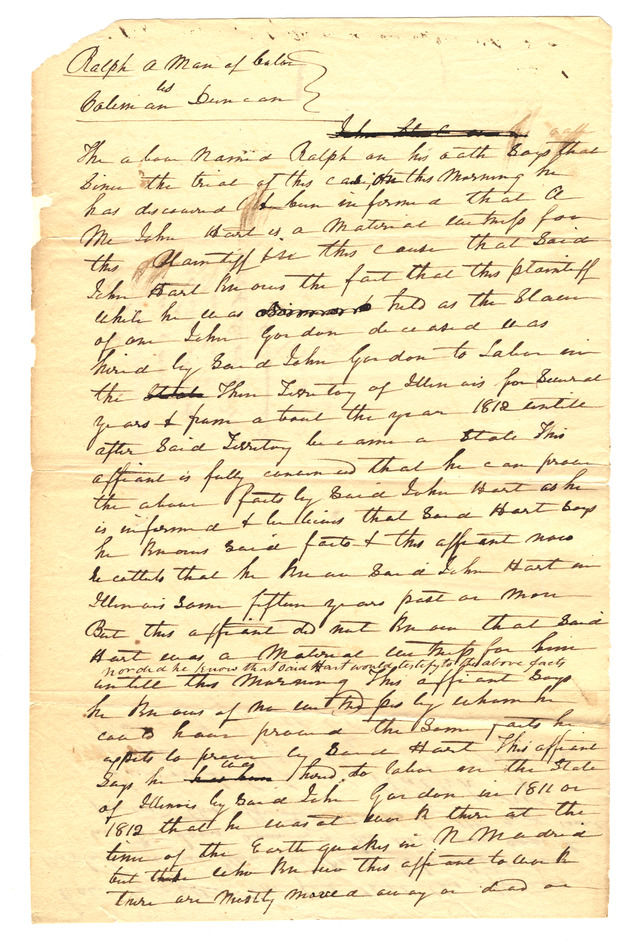 Ralph A Man of Color
vs
Coleman Duncan
The above Named Ralph on his oath Says that
Since the trial of this case on this Morning he
has discovered & been informed that A
Mr John Hart is a Material witness for
this Plaintiff in this cause that Said
John Hart Knows the fact that this plaintiff
while he was held as the Slave
of one John Gordon deceased was
hired by Said John Gordon to Labor in
the State Then Territory of Illinois for Several
years & from about the year 1812 untill
after Said Territory became a State This
affiant is fully convinced that he can prove
the above facts by Said John Hart as he
is informed & believes that Said Hart Says
he Knows Said facts & this affiant now
recollects that he Knew Said John Hart in
Illinois Some fifteen years past or more
But this affiant did not Know that Said
Hart was a Material witness for him
nor did he know that Said Hart would testify to the above facts
untill this Morning This affiant Says
he Knows of no witness by whom he
could have proved the Same facts he
expects to prove by Said Hart This affiant
Says he was hired to labor in the State
of Illinois by Said John Gordon in 1811 or
1812 that he was at work there at the
time of the Earth quakes in N Madrid
but those who Knew this affiant to work
there are mostly moved away or dead or